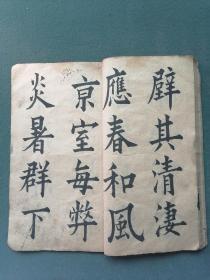 躃其清淒
應春和風
京室每弊
炎暑群下